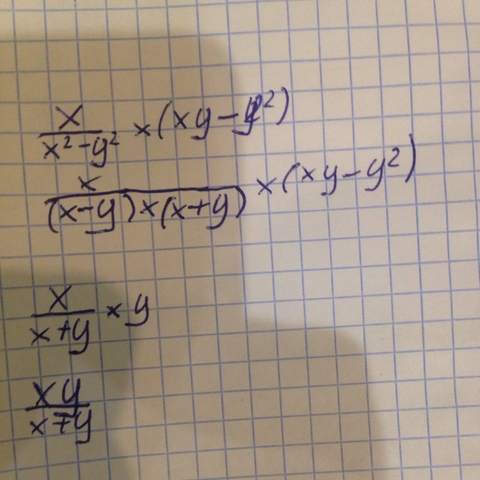 x/(x²-y²) × (xy-y²)
x/((x-y)×(x+y)) × (xy-y²)
x/(x+y) × y
xy/(x+y)